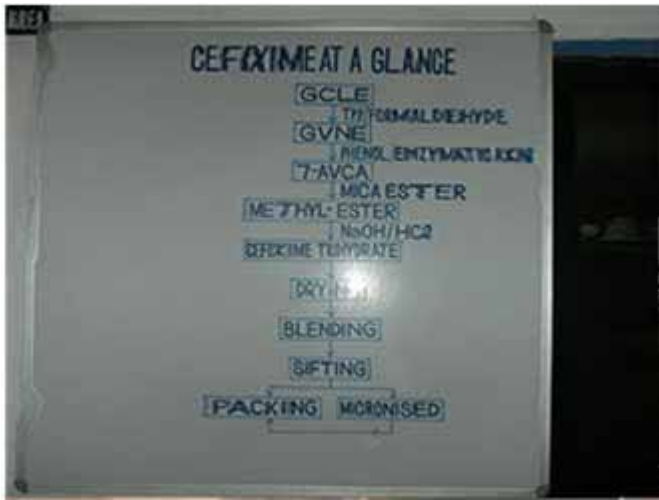 AREA
CEFIXIME AT A GLANCE
GCLE
FORMALDEHYDE
GVNE
PHENOL, ENZYMATIC RXN
7-AVCA
MICA ESTER
METHYL-ESTER
NaOH/HCl
CEFIXIME TRIHYDRATE
BLENDING
SIFTING
PACKING MICRONISED